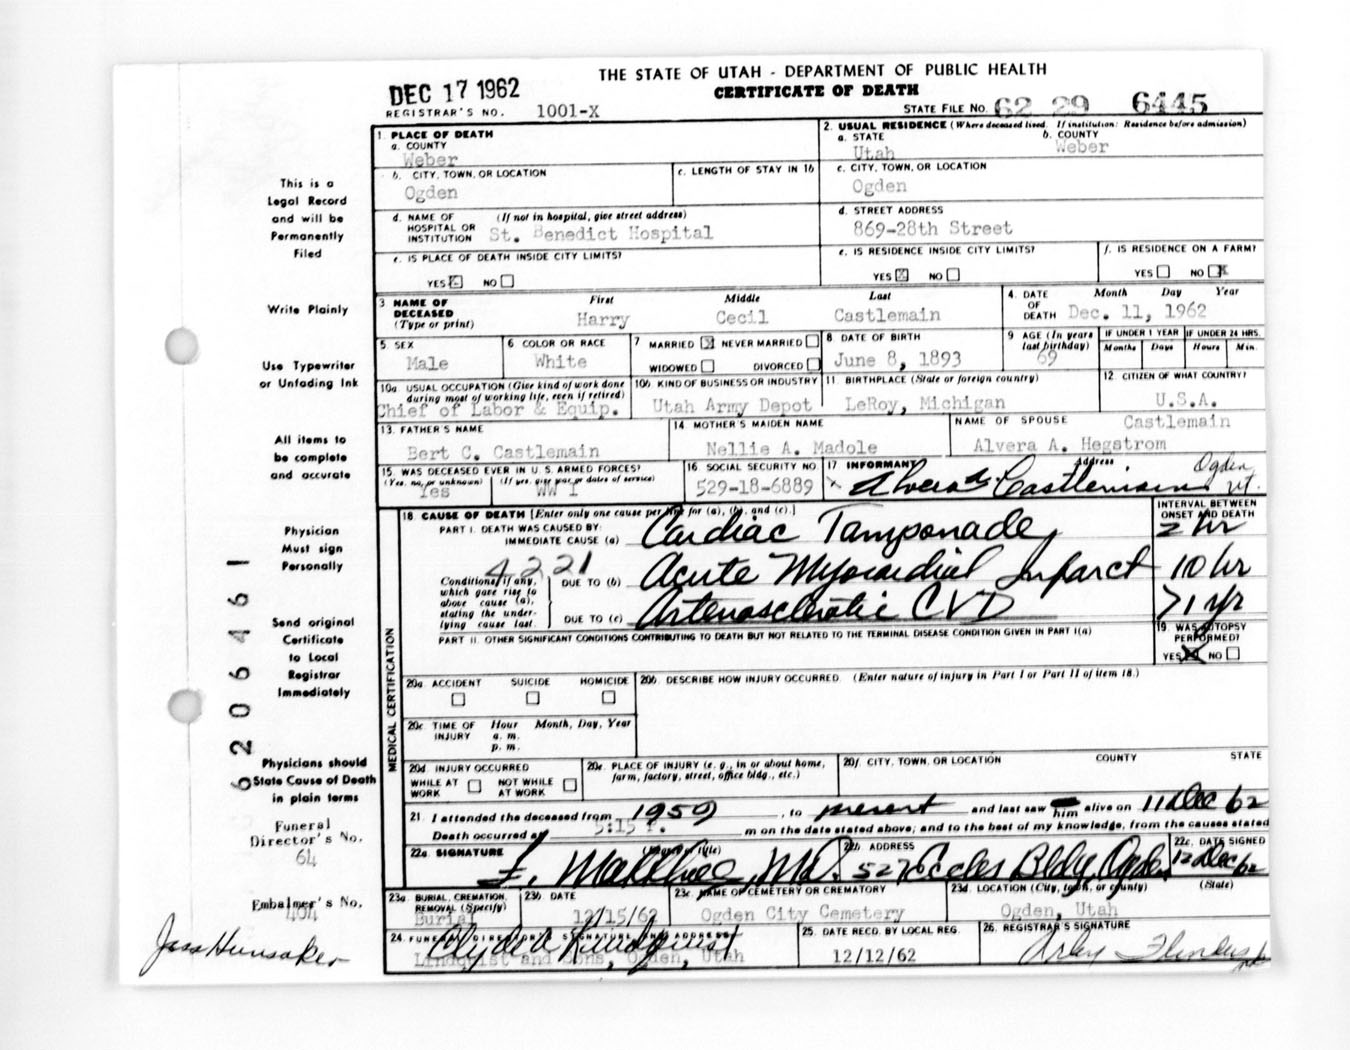 THE STATE OF UTAH - DEPARTMENT OF PUBLIC HEALTH
DEC 17 1962
CERTIFICATE OF DEATH
REGISTRAR'S NO. 1001-X
STATE FILE NO. 62 29 6445
1. PLACE OF DEATH
a. COUNTY
Weber
2. USUAL RESIDENCE (Where deceased lived. If institution: Residence before admission)
a. STATE b. COUNTY
Utah Weber
b. CITY, TOWN, OR LOCATION
Ogden
c. LENGTH OF STAY IN 1b
c. CITY, TOWN, OR LOCATION
Ogden
d. NAME OF HOSPITAL OR INSTITUTION (If not in hospital, give street address)
St. Benedict Hospital
d. STREET ADDRESS
869-28th Street
e. IS PLACE OF DEATH INSIDE CITY LIMITS?
YES NO
e. IS RESIDENCE INSIDE CITY LIMITS?
YES X NO
f. IS RESIDENCE ON A FARM?
YES NO X
3 NAME OF DECEASED (Type or print)
First Middle Last
Harry Cecil Castlemain
4. DATE OF DEATH Month Day Year
Dec. 11, 1962
5. SEX
Male
6 COLOR OR RACE
White
7 MARRIED X NEVER MARRIED
WIDOWED DIVORCED
8 DATE OF BIRTH
June 8, 1893
9 AGE (In years last birthday)
69
IF UNDER 1 YEAR IF UNDER 24 HRS.
Months Days Hours Min.
10a. USUAL OCCUPATION (Give kind of work done during most of working life, even if retired)
Chief of Labor & Equip.
10b KIND OF BUSINESS OR INDUSTRY
Utah Army Depot
11. BIRTHPLACE (State or foreign country)
LeRoy, Michigan
12 CITIZEN OF WHAT COUNTRY?
U.S.A.
13. FATHER'S NAME
Bert C. Castlemain
14 MOTHER'S MAIDEN NAME
Nellie A. Madole
NAME OF SPOUSE Castlemain
Alvera A. Hegstrom
15. WAS DECEASED EVER IN U.S. ARMED FORCES?
(Yes, no, or unknown) (If yes, give war or dates of service)
Yes WW I
16 SOCIAL SECURITY NO.
529-18-6889
17 INFORMANT Address
Alvera A. Castlemain Ogden Ut.
18. CAUSE OF DEATH [Enter only one cause per line for (a), (b), and (c).]
INTERVAL BETWEEN ONSET AND DEATH
PART I. DEATH WAS CAUSED BY:
IMMEDIATE CAUSE (a) Cardiac Tamponade 2 hr
4221
Conditions, if any, which gave rise to above cause (a), stating the underlying cause last.
DUE TO (b) Acute Myocardial Infarct 10 hr
DUE TO (c) Arteriosclerotic CVD >1 yr
PART II. OTHER SIGNIFICANT CONDITIONS CONTRIBUTING TO DEATH BUT NOT RELATED TO THE TERMINAL DISEASE CONDITION GIVEN IN PART I(a)
19. WAS AUTOPSY PERFORMED?
YES X NO
MEDICAL CERTIFICATION
20a. ACCIDENT SUICIDE HOMICIDE
20b. DESCRIBE HOW INJURY OCCURRED. (Enter nature of injury in Part I or Part II of item 18.)
20c TIME OF INJURY Hour Month, Day, Year
a. m.
p. m.
20d. INJURY OCCURRED
WHILE AT WORK NOT WHILE AT WORK
20e. PLACE OF INJURY (e. g., in or about home, farm, factory, street, office bldg., etc.)
20f. CITY, TOWN, OR LOCATION COUNTY STATE
21. I attended the deceased from 1959, to present and last saw him alive on 11 Dec 62
Death occurred at 5:15 P. m on the date stated above; and to the best of my knowledge, from the causes stated
22a. SIGNATURE (Degree or title)
22b. ADDRESS
527 Eccles Bldg Ogden
22c. DATE SIGNED
12 Dec 62
23a. BURIAL, CREMATION, REMOVAL (Specify)
Burial
23b DATE
12/15/62
23c. NAME OF CEMETERY OR CREMATORY
Ogden City Cemetery
23d. LOCATION (City, town, or county) (State)
Ogden, Utah
24. FUNERAL DIRECTOR'S SIGNATURE AND ADDRESS
Lindquist and Sons, Ogden, Utah
25. DATE RECD. BY LOCAL REG.
12/12/62
26. REGISTRAR'S SIGNATURE
This is a
Legal Record
and will be
Permanently
Filed
Write Plainly
Use Typewriter
or Unfading Ink
All items to
be complete
and accurate
Physician
Must sign
Personally
Send original
Certificate
to Local
Registrar
Immediately
Physicians should
State Cause of Death
in plain terms
Funeral
Director's No.
64
Embalmer's No.
404
Jass Hunsaker
6206461